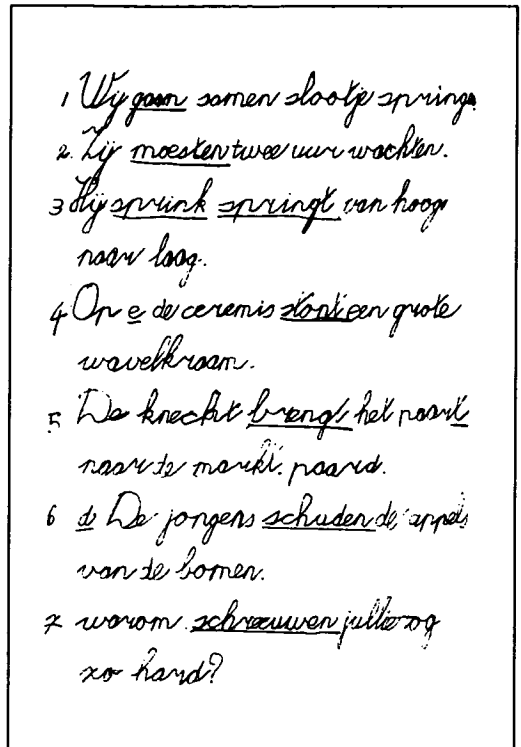 1 Wij gaan samen slootje springe
2. Zij moesten twee uur wachten.
3 Hij sprink springt van hoog
naar laag.
4 Op e de ceremis stont een grote
wavelkraam.
5 De knecht brengt het paart
naar de markt. paard.
6 de De jongens schuden de appels
van de bomen.
7 warom schreeuwen jullie zog
zo hard?